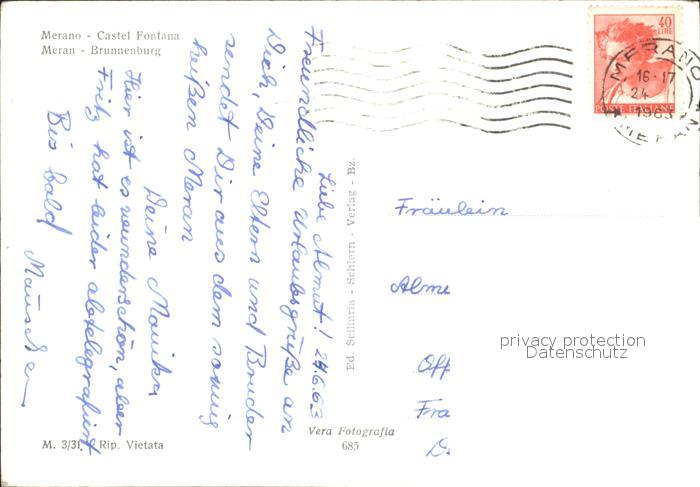 Merano - Castel Fontana
Meran - Brunnenburg
Liebe Almut! 24.6.63
Freundliche Urlaubsgrüße an
Dich, Deine Eltern und Bruder
sendet Dir aus dem sonnig
heißen Meran
Deine Monika
Hier ist es wunderschön, aber
Fritz hat leider abtelegrafiert
Bis bald
M. 3/31 - Rip. Vietata
Ed. Sciliaria - Schlern - Verlag - Bz.
Vera Fotografia
685
40
LIRE
POSTE ITALIANE
MERANO
16-17
24
1963
MERAN
Fräulein
Almu
Off
Fra
D.
privacy protection
Datenschutz